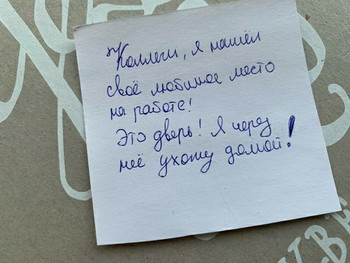 "Коллеги, я нашёл
своё любимое место
на работе!
Это дверь! Я через
неё ухожу домой!